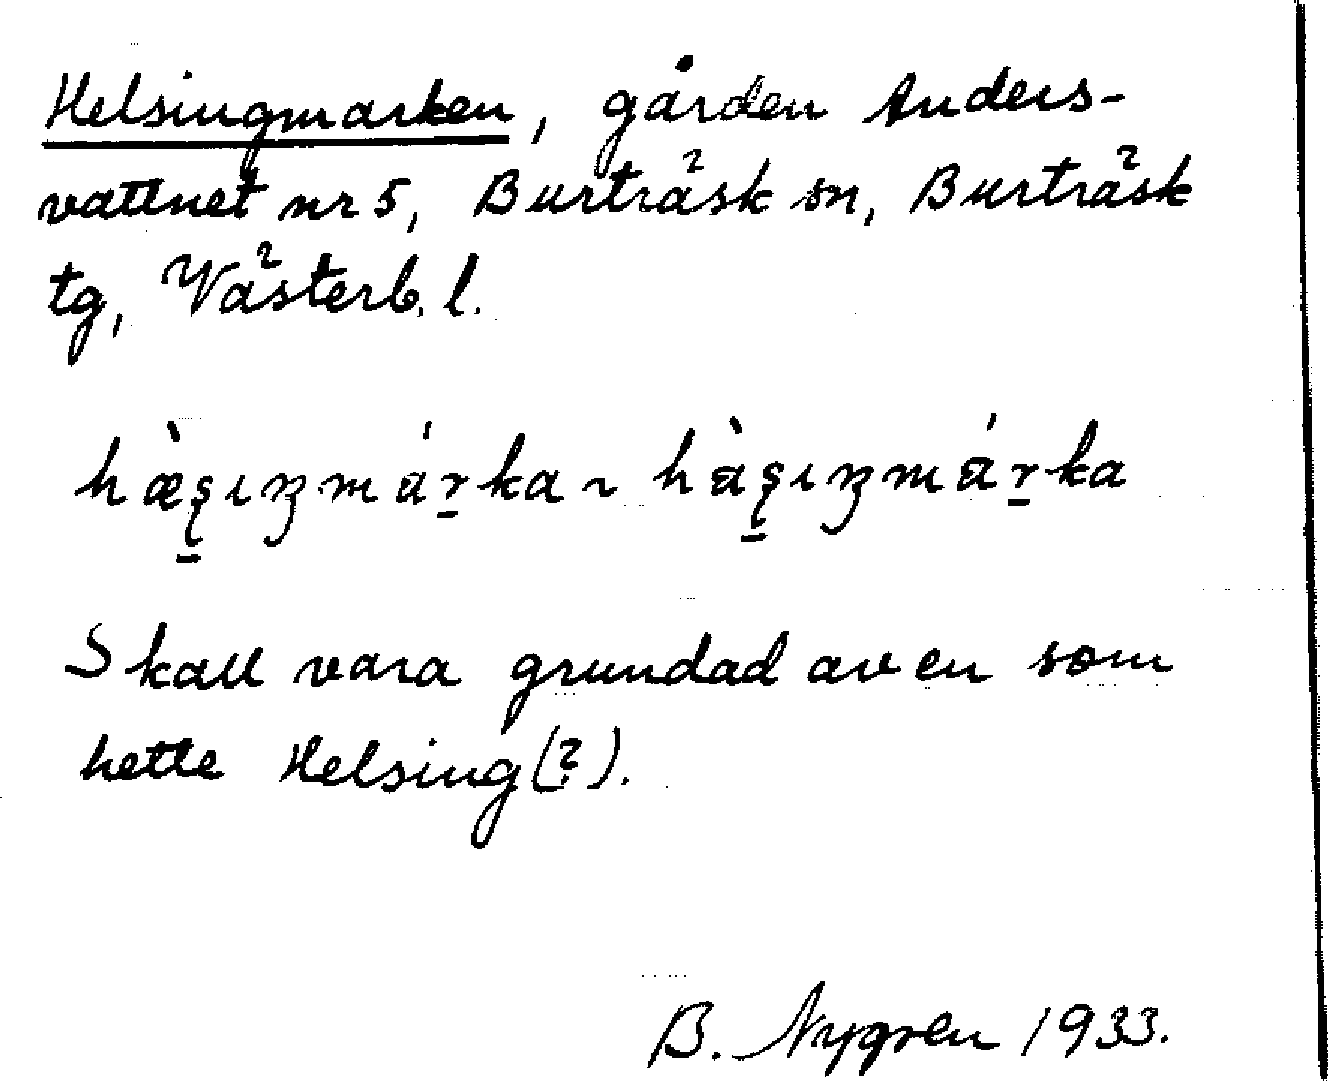 Helsingmarken, gården Anders-
vattnet nr 5, Burträsk sn, Burträsk
tg, Västerb. l.
hæ̀şıŋmárka ~ hàşıŋmárka
Skall vara grundad av en som
hette Helsing(?).
B. Nygren 1933.